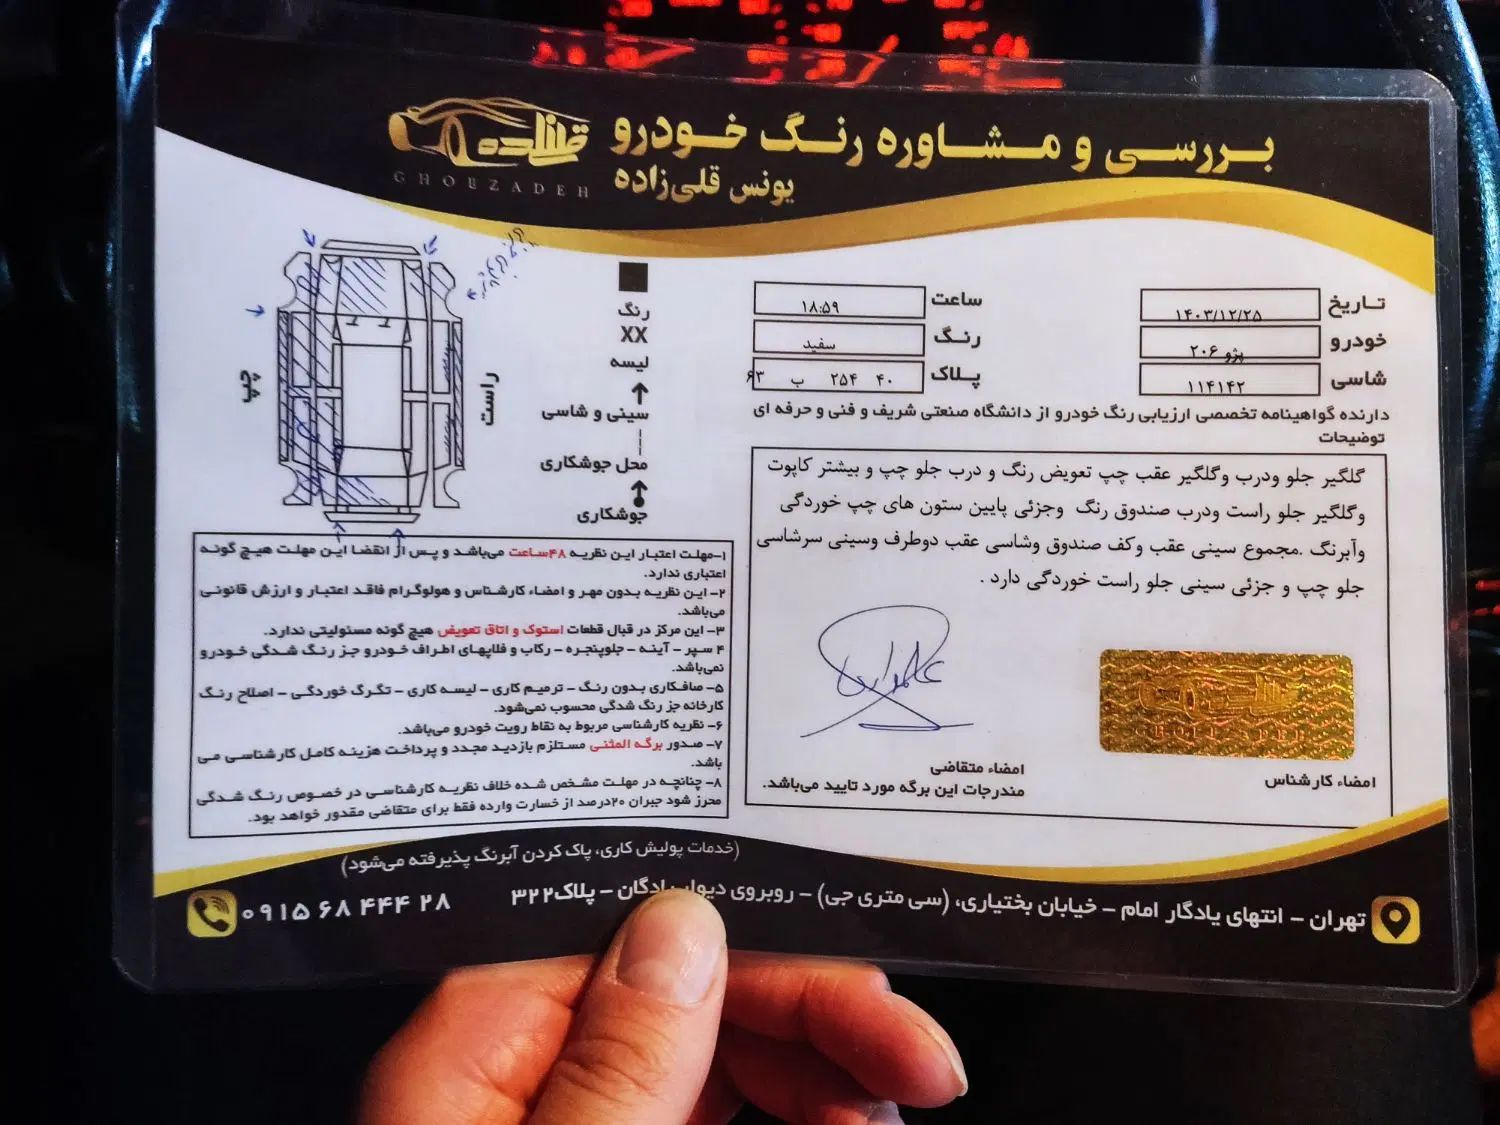 بررسی و مشاوره رنگ خودرو
یونس قلی‌زاده
قلیزاده
GHOLIZADEH
تاریخ ۱۴۰۳/۱۲/۲۵
ساعت ۱۸:۵۹
خودرو پژو ۲۰۶
رنگ سفید
شاسی ۱۱۴۱۴۲
پلاک ۴۰ ۲۵۴ ب ۶۳
دارنده گواهینامه تخصصی ارزیابی رنگ خودرو از دانشگاه صنعتی شریف و فنی و حرفه ای
توضیحات
گلگیر جلو ودرب وگلگیر عقب چپ تعویض رنگ و درب جلو چپ و بیشتر کاپوت
وگلگیر جلو راست ودرب صندوق رنگ وجزئی پایین ستون های چپ خوردگی
وآبرنگ .مجموع سینی عقب وکف صندوق وشاسی عقب دوطرف وسینی سرشاسی
جلو چپ و جزئی سینی جلو راست خوردگی دارد .
امضاء کارشناس
امضاء متقاضی
مندرجات این برگه مورد تایید می‌باشد.
رنگ
XX
لیسه
سینی و شاسی
محل جوشکاری
جوشکاری
راست
چپ
۱-مهلت اعتبار این نظریه ۴۸ساعت می‌باشد و پس از انقضا این مهلت هیچ گونه
اعتباری ندارد.
۲- این نظریه بدون مهر و امضاء کارشناس و هولوگرام فاقد اعتبار و ارزش قانونی
می‌باشد.
۳- این مرکز در قبال قطعات استوک و اتاق تعویض هیچ گونه مسئولیتی ندارد.
۴ سپر - آینه - جلوپنجره - رکاب و فلاپهای اطراف خودرو جز رنگ شدگی خودرو
نمی‌باشد.
۵- صافکاری بدون رنگ - ترمیم کاری - لیسه کاری - تگرگ خوردگی - اصلاح رنگ
کارخانه جز رنگ شدگی محسوب نمی‌شود.
۶- نظریه کارشناسی مربوط به نقاط رویت خودرو می‌باشد.
۷- صدور برگه المثنی مستلزم بازدید مجدد و پرداخت هزینه کامل کارشناسی می
باشد.
۸- چنانچه در مهلت مشخص شده خلاف نظریه کارشناسی در خصوص رنگ شدگی
محرز شود جبران ۲۰درصد از خسارت وارده فقط برای متقاضی مقدور خواهد بود.
(خدمات پولیش کاری، پاک کردن آبرنگ پذیرفته می‌شود)
تهران - انتهای یادگار امام - خیابان بختیاری، (سی متری جی) - روبروی دیوار پادگان - پلاک۳۲۲
۰۹۱۵ ۶۸ ۴۴۴ ۲۸